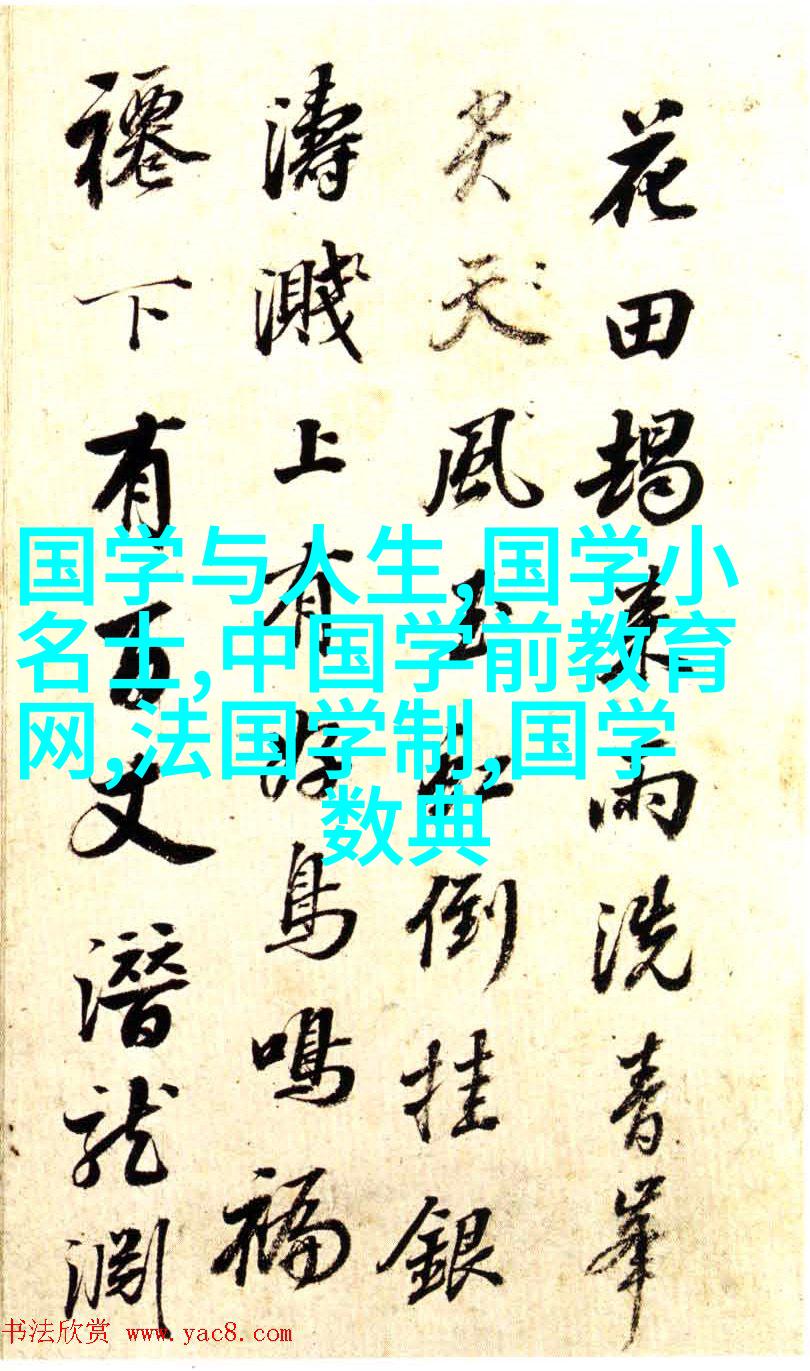 花田朅来雨洗青峯
突天風玉虹倒挂銀
濤濺上有好鳥鳴福
禋下有百丈潛龍淵
国学与人生,国学小
名士,中国学前教育
网,法国学制,国学
数典
书法欣赏 www.yac8.com